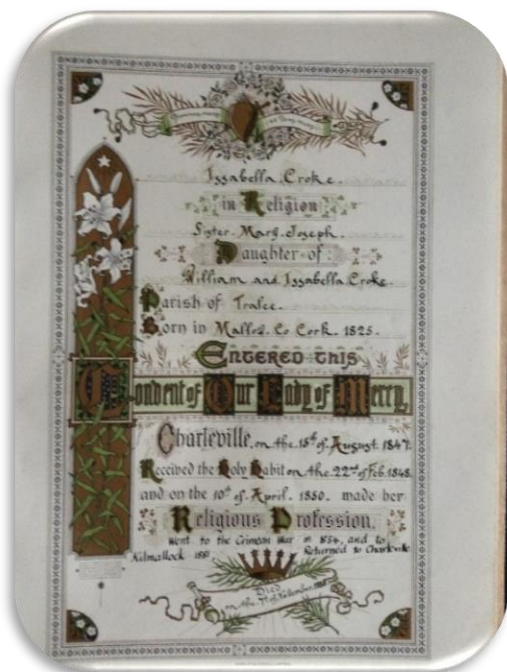 Issabella Croke.
in Religion
Sister Mary Joseph.
Daughter of:
William and Issabella Croke.
Parish of Tralee.
Born in Mallow. Co Cork. 1825.
ENTERED THIS
Convent of Our Lady of Mercy,
Charleville, on the 15th of August 1847.
Received the Holy Habit on the 22nd of Feb. 1848.
and on the 10th of April. 1850. made her
Religious Profession.
Went to the Crimean War in 1854, and to
Kilmallock Returned to Charleville
Died
on the